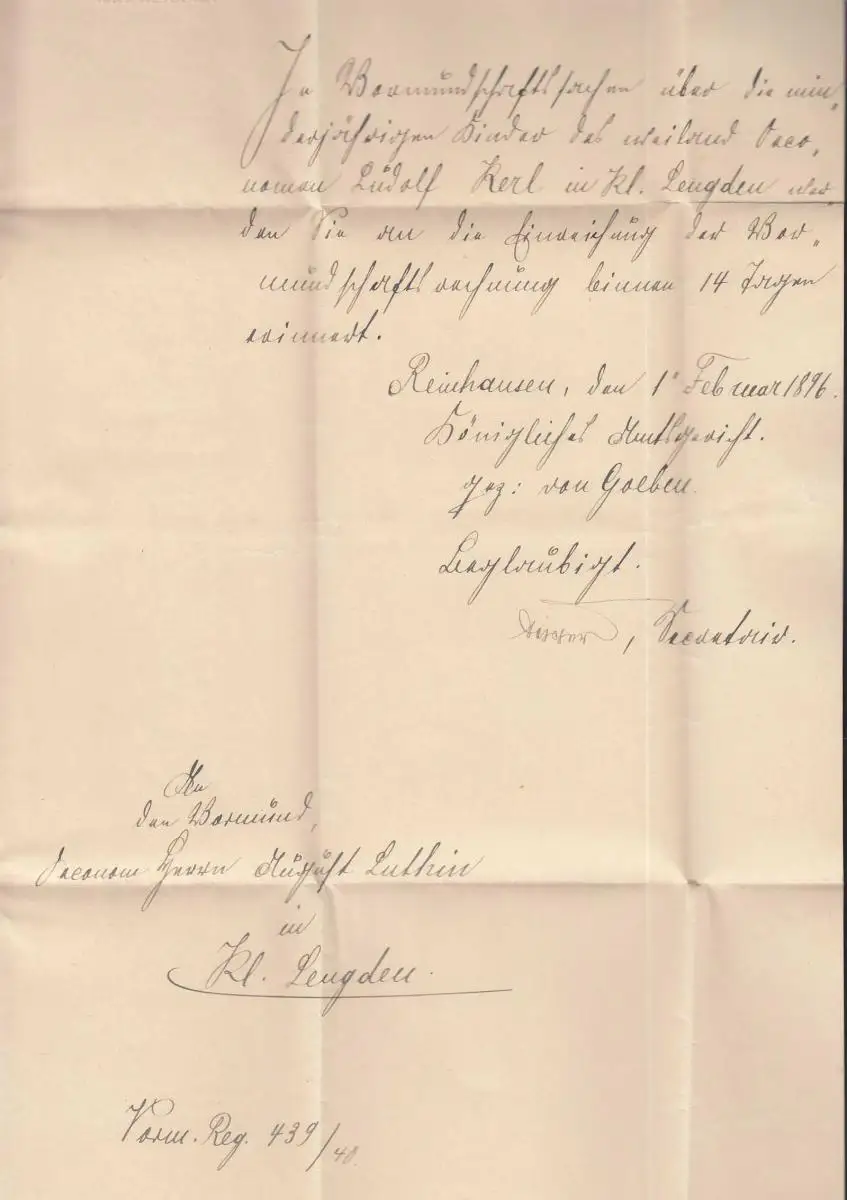 In Vormundschaftssachen über die min„
derjährigen Kinder des weiland Oeco„
nomen Ludolf Kerl in Kl. Lengden wer„
den Sie an die Einreichung der Vor„
mundschaftsrechnung binnen 14 Tagen
erinnert.
Reinhausen, den 1. Februar 1896.
Königliches Amtsgericht.
gez: von Goeben.
Beglaubigt.
, Secretair.
An
den Vormund,
Oeconom Herrn August Luthin
in
Kl. Lengden.
Vorm. Reg. 439/40.